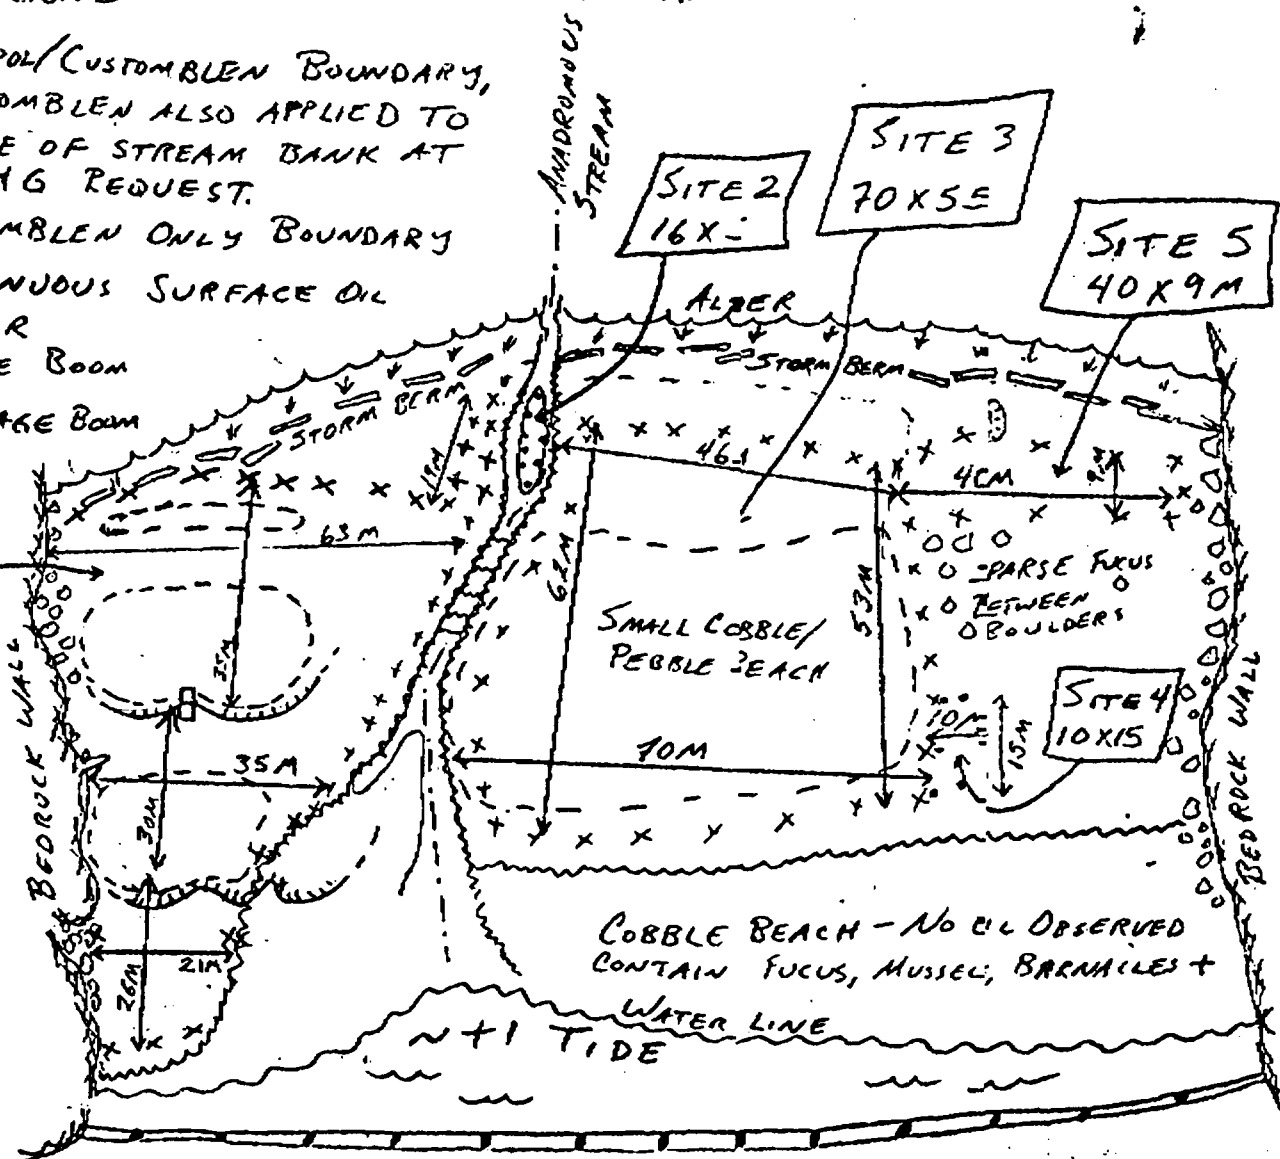 POL/CUSTOMBLEN BOUNDARY,
OMBLEN ALSO APPLIED TO
E OF STREAM BANK AT
REQUEST.
MBLEN ONLY BOUNDARY
NUOUS SURFACE OIL
R
E BOOM
AGE BOOM
ANADROMOUS
STREAM
SITE 2
16 X
SITE 3
70 X 5
SITE 5
40 X 9 M
ALDER
STORM BERM
STORM BERM
19M
46
4CM
9M
63 M
62M
53M
35M
SPARSE FUKUS
BETWEEN
BOULDERS
SMALL COBBLE/
PEBBLE BEACH
SITE 4
10X15
10M
15M
70M
35M
30M
BEDROCK WALL
BEDROCK WALL
21M
26M
COBBLE BEACH - NO OIL OBSERVED
CONTAIN FUCUS, MUSSEL, BARNACLES +
WATER LINE
~ +1 TIDE